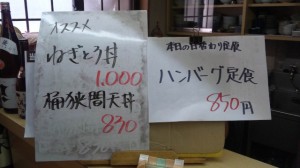 オススメ
ねぎとろ丼
1,000
桶狭間天丼
830
本日の日替わり定食
ハンバーグ定食
850円